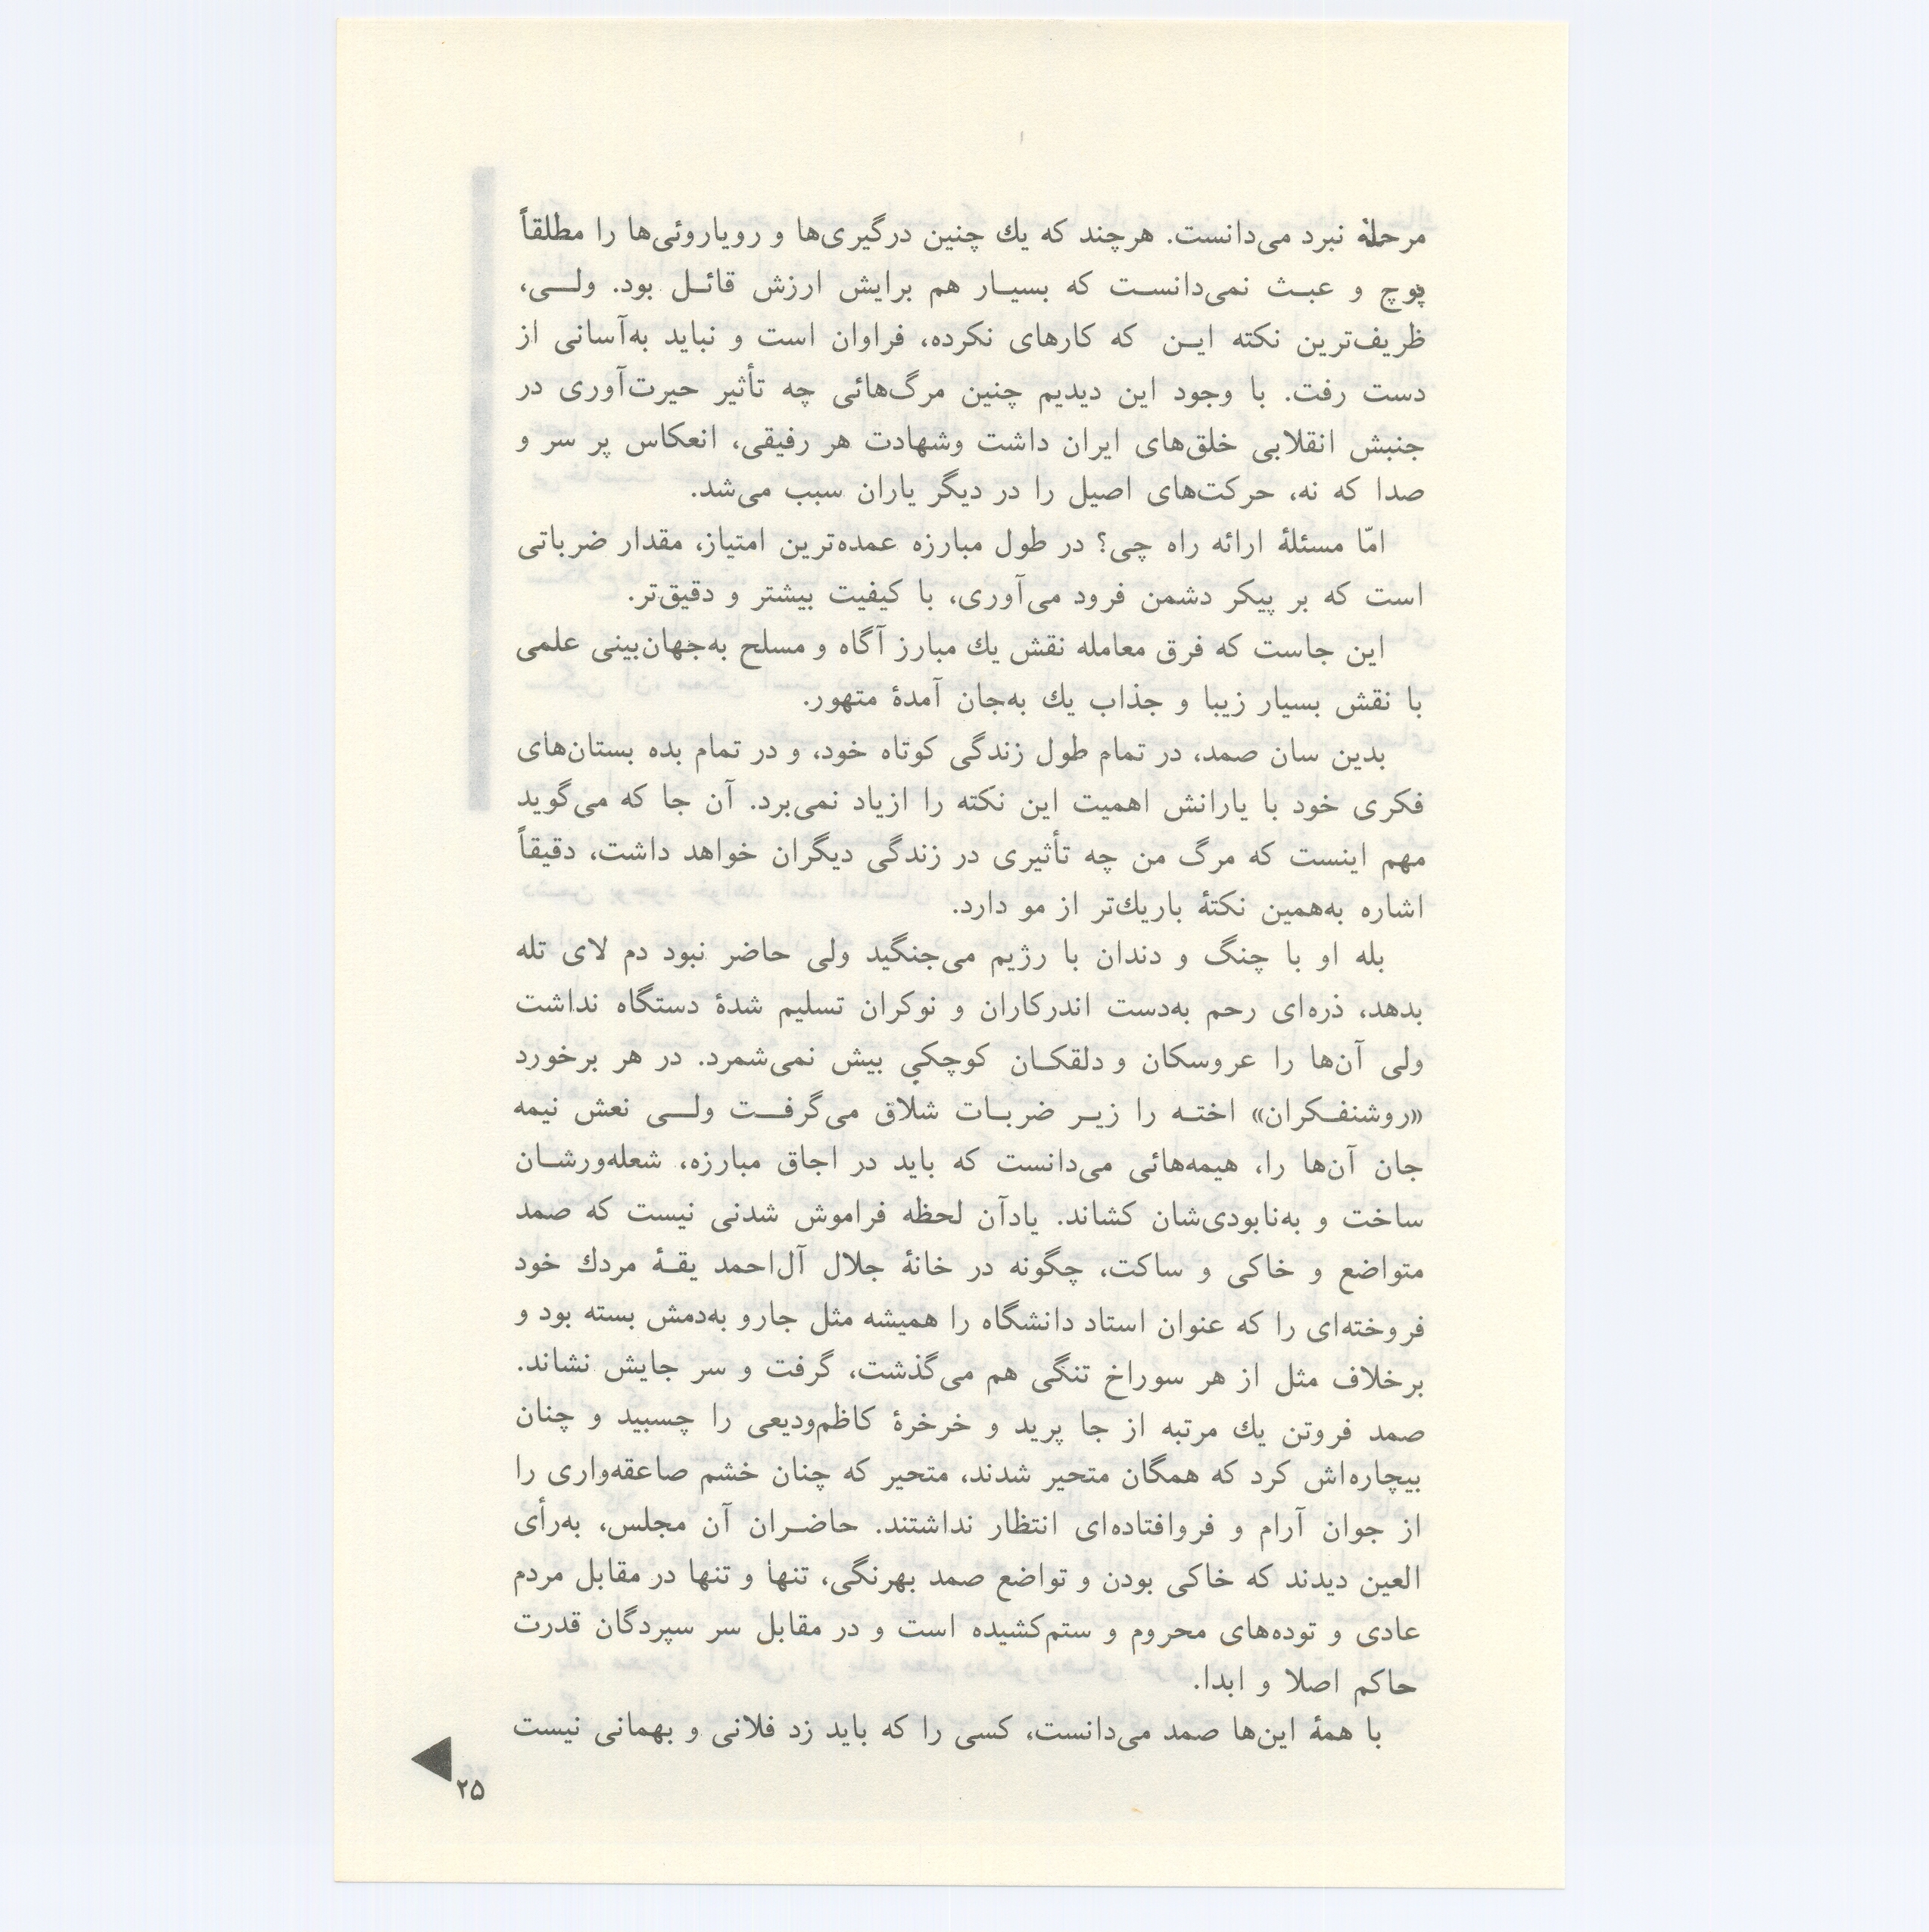 مرحلهٔ نبرد می‌دانست. هرچند که یك چنین درگیری‌ها و رویاروئی‌ها را مطلقاً
پوچ و عبث نمی‌دانست که بسیار هم برایش ارزش قائل بود. ولی،
ظریف‌ترین نکته این که کارهای نکرده، فراوان است و نباید به‌آسانی از
دست رفت. با وجود این دیدیم چنین مرگ‌هائی چه تأثیر حیرت‌آوری در
جنبش انقلابی خلق‌های ایران داشت وشهادت هر رفیقی، انعکاس پر سر و
صدا که نه، حرکت‌های اصیل را در دیگر یاران سبب می‌شد.
امّا مسئلهٔ ارائه راه چی؟ در طول مبارزه عمده‌ترین امتیاز، مقدار ضرباتی
است که بر پیکر دشمن فرود می‌آوری، با کیفیت بیشتر و دقیق‌تر.
این جاست که فرق معامله نقش یك مبارز آگاه و مسلح به‌جهان‌بینی علمی
با نقش بسیار زیبا و جذاب یك به‌جان آمدهٔ متهور.
بدین سان صمد، در تمام طول زندگی کوتاه خود، و در تمام بده بستان‌های
فکری خود با یارانش اهمیت این نکته را ازیاد نمی‌برد. آن جا که می‌گوید
مهم اینست که مرگ من چه تأثیری در زندگی دیگران خواهد داشت، دقیقاً
اشاره به‌همین نکتهٔ باریك‌تر از مو دارد.
بله او با چنگ و دندان با رژیم می‌جنگید ولی حاضر نبود دم لای تله
بدهد، ذره‌ای رحم به‌دست اندرکاران و نوکران تسلیم شدهٔ دستگاه نداشت
ولی آن‌ها را عروسکان و دلقکان کوچکي بیش نمی‌شمرد. در هر برخورد
«روشنفکران» اخته را زیر ضربات شلاق می‌گرفت ولی نعش نیمه
جان آن‌ها را، هیمه‌هائی می‌دانست که باید در اجاق مبارزه، شعله‌ورشان
ساخت و به‌نابودی‌شان کشاند. یادآن لحظه فراموش شدنی نیست که صمد
متواضع و خاکی و ساکت، چگونه در خانهٔ جلال آل‌احمد یقهٔ مردك خود
فروخته‌ای را که عنوان استاد دانشگاه را همیشه مثل جارو به‌دمش بسته بود و
برخلاف مثل از هر سوراخ تنگی هم می‌گذشت، گرفت و سر جایش نشاند.
صمد فروتن یك مرتبه از جا پرید و خرخرهٔ کاظم‌ودیعی را چسبید و چنان
بیچاره‌اش کرد که همگان متحیر شدند، متحیر که چنان خشم صاعقه‌واری را
از جوان آرام و فروافتاده‌ای انتظار نداشتند. حاضران آن مجلس، به‌رأی
العین دیدند که خاکی بودن و تواضع صمد بهرنگی، تنها و تنها در مقابل مردم
عادی و توده‌های محروم و ستم‌کشیده است و در مقابل سر سپردگان قدرت
حاکم اصلا و ابدا.
با همهٔ این‌ها صمد می‌دانست، کسی را که باید زد فلانی و بهمانی نیست
۲۵